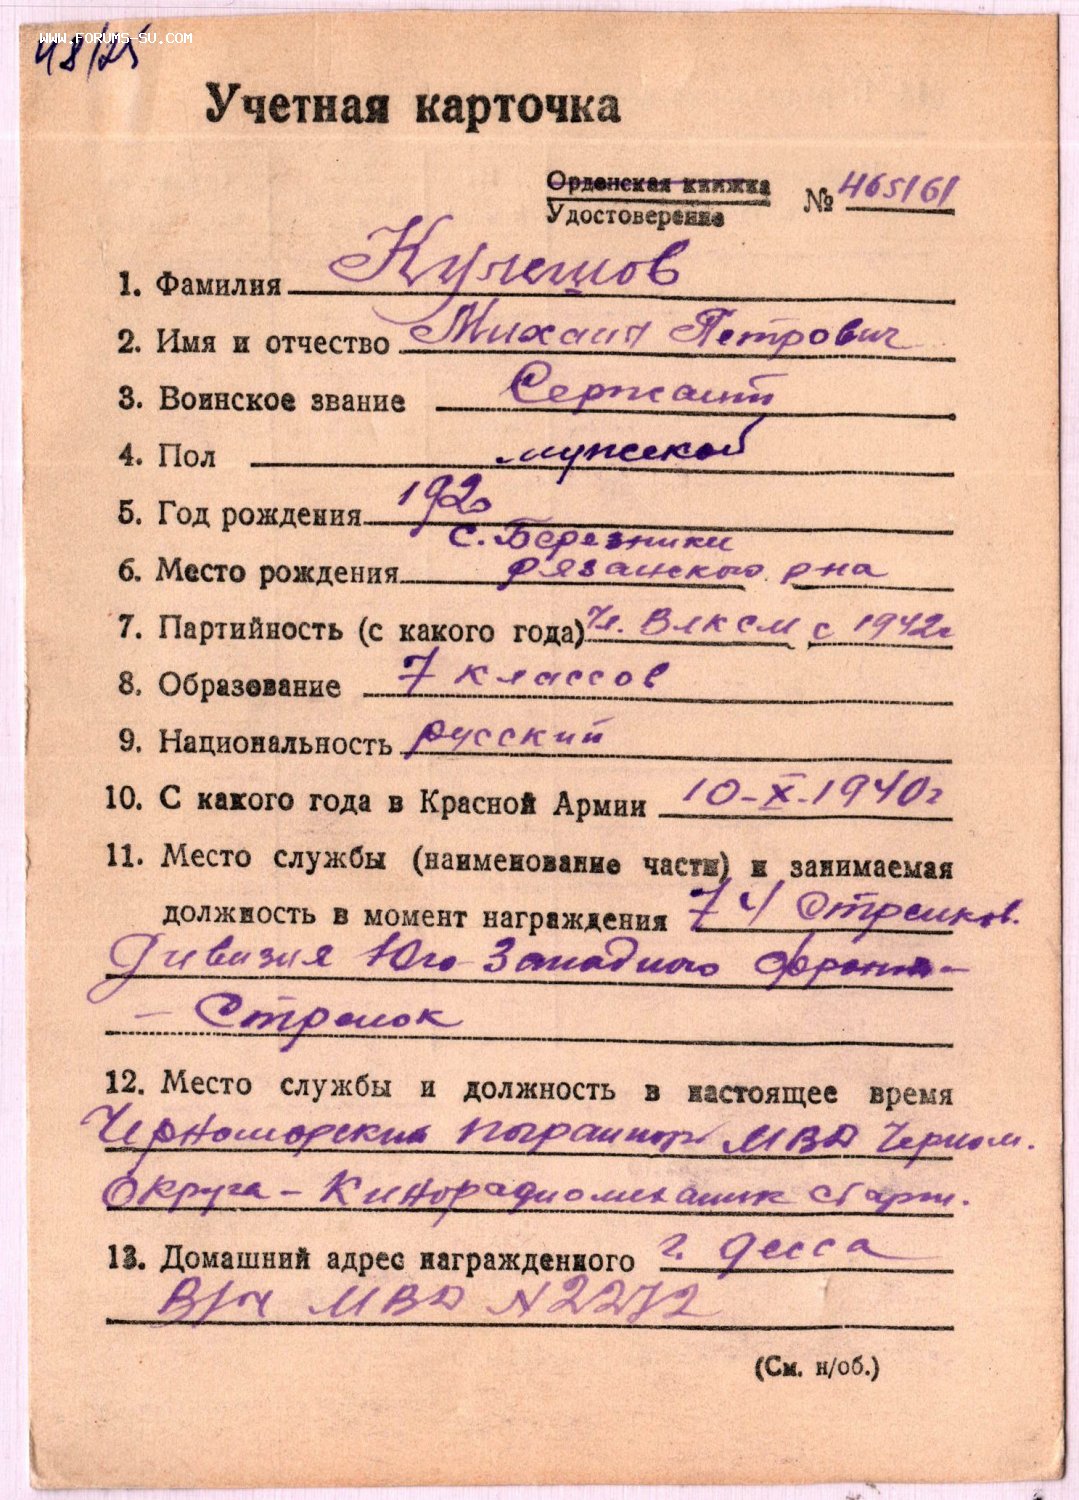 WWW.FORUMS-SU.COM
48/25
Учетная карточка
Орденская книжка
Удостоверение № 465161
1. Фамилия Кулешов
2. Имя и отчество Михаил Петрович
3. Воинское звание Сержант
4. Пол мужской
5. Год рождения 1920
с. Березники
6. Место рождения Рязанского р-на
7. Партийность (с какого года) Чл. ВЛКСМ с 1942г
8. Образование 7 классов
9. Национальность русский
10. С какого года в Красной Армии 10-X-1940г
11. Место службы (наименование части) и занимаемая
должность в момент награждения 74 Стрелков.
Дивизия Юго-Западного фронта-
- Стрелок
12. Место службы и должность в настоящее время
Черноморский МВД Черном.
Округа - Кинорадиомеханик
13. Домашний адрес награжденного г. Одесса
В/ч МВД N 2272
(См. н/об.)